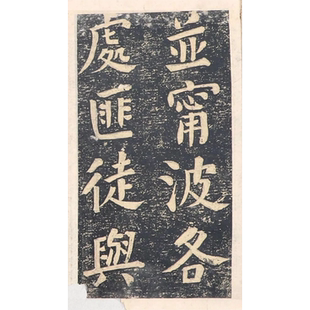 並甯波各
處匪徒與